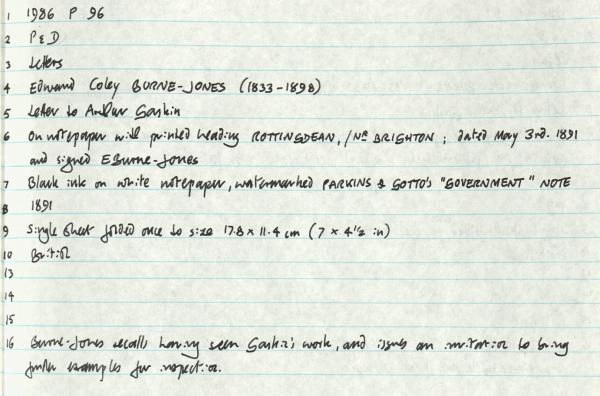 1 1986 P 96
2 P&D
3 Letters
4 Edward Coley BURNE-JONES (1833-1898)
5 Letter to Arthur Gaskin
6 On notepaper with printed heading ROTTINGDEAN, /NR BRIGHTON ; dated May 3rd. 1891
and signed EBurne-Jones
7 Black ink on white notepaper, watermarked PARKINS & GOTTO'S "GOVERNMENT" NOTE
8 1891
9 Single sheet folded once to size 17.8 x 11.4 cm (7 x 4½ in)
10 British
13
14
15
16 Burne-Jones recalls having seen Gaskin's work, and issues an invitation to bring
further examples for inspection.